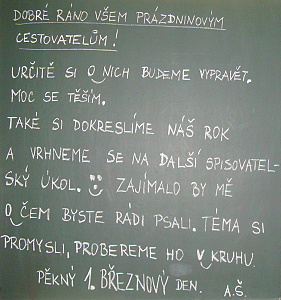 DOBRÉ RÁNO VŠEM PRÁZDNINOVÝM
CESTOVATELŮM!
URČITĚ SI O NICH BUDEME VYPRAVĚT.
MOC SE TĚŠÍM.
TAKÉ SI DOKRESLÍME NÁŠ ROK
A VRHNEME SE NA DALŠÍ SPISOVATEL-
SKÝ ÚKOL. ZAJÍMALO BY MĚ
O ČEM BYSTE RÁDI PSALI. TÉMA SI
PROMYSLI, PROBEREME HO V KRUHU.
PĚKNÝ 1. BŘEZNOVÝ DEN. A.Š.